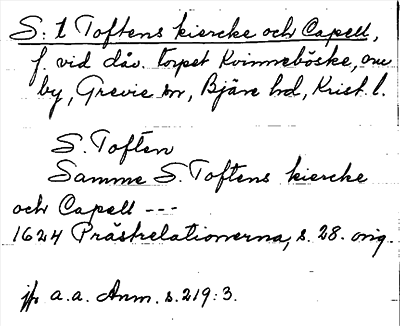 S:t Toftens kiercke och Capell,
f. vid dåv. torpet Kvinneböske,
by, Grevie sn, Bjäre hd, Krist. l.
S. Toften
Samme S. Toftens kiercke
och Capell ---
1624 Prästrelationerna, s. 28. orig.
jfr a.a. Anm. s. 219:3.